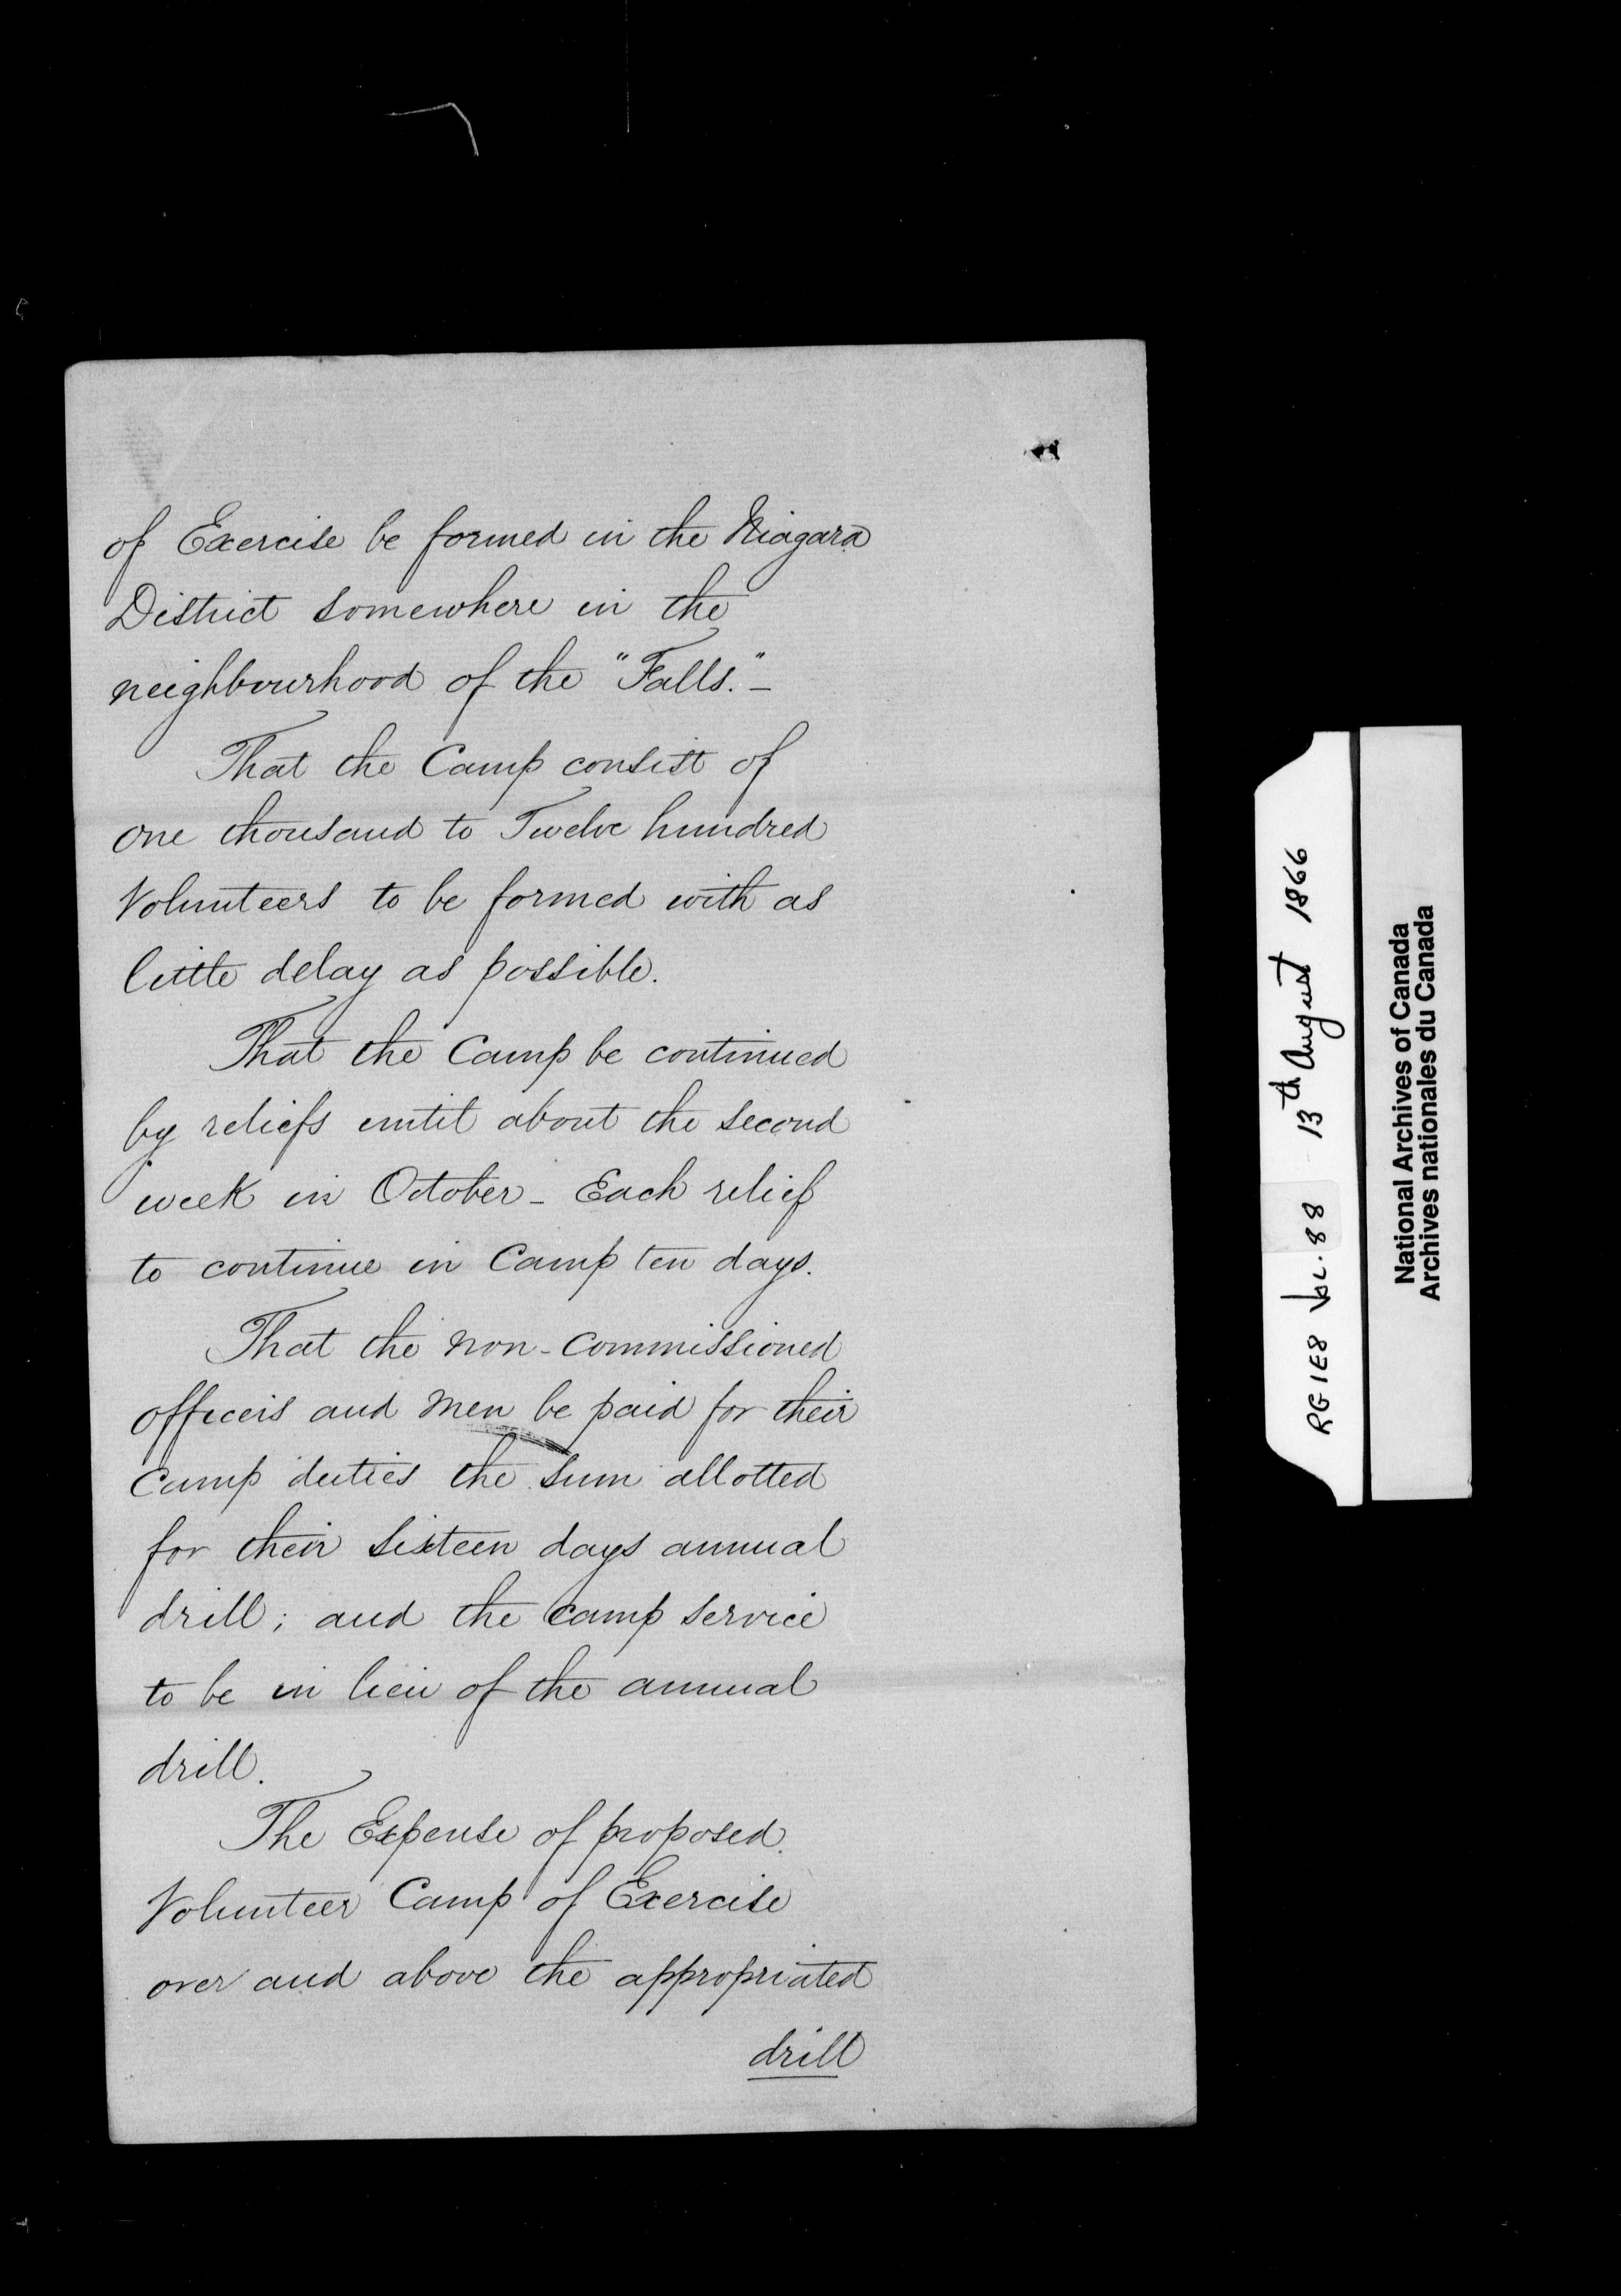 of Exercise be formed in the Niagara
District somewhere in the
neighbourhood of the "Falls."_
That the Camp consist of
one thousand to Twelve hundred
Volunteers to be formed with as
little delay as possible.
That the Camp be continued
by reliefs until about the second
week in October_ Each relief
to continue in Camp ten days.
That the non-commissioned
officers and men be paid for their
Camp duties the sum allotted
for their sixteen days annual
drill; and the Camp service
to be in lieu of the annual
drill.
The Expense of proposed
Volunteer Camp of Exercise
over and above the appropriated
drill
RG1E8 VOL. 88 13th August 1866
National Archives of Canada
Archives nationales du Canada